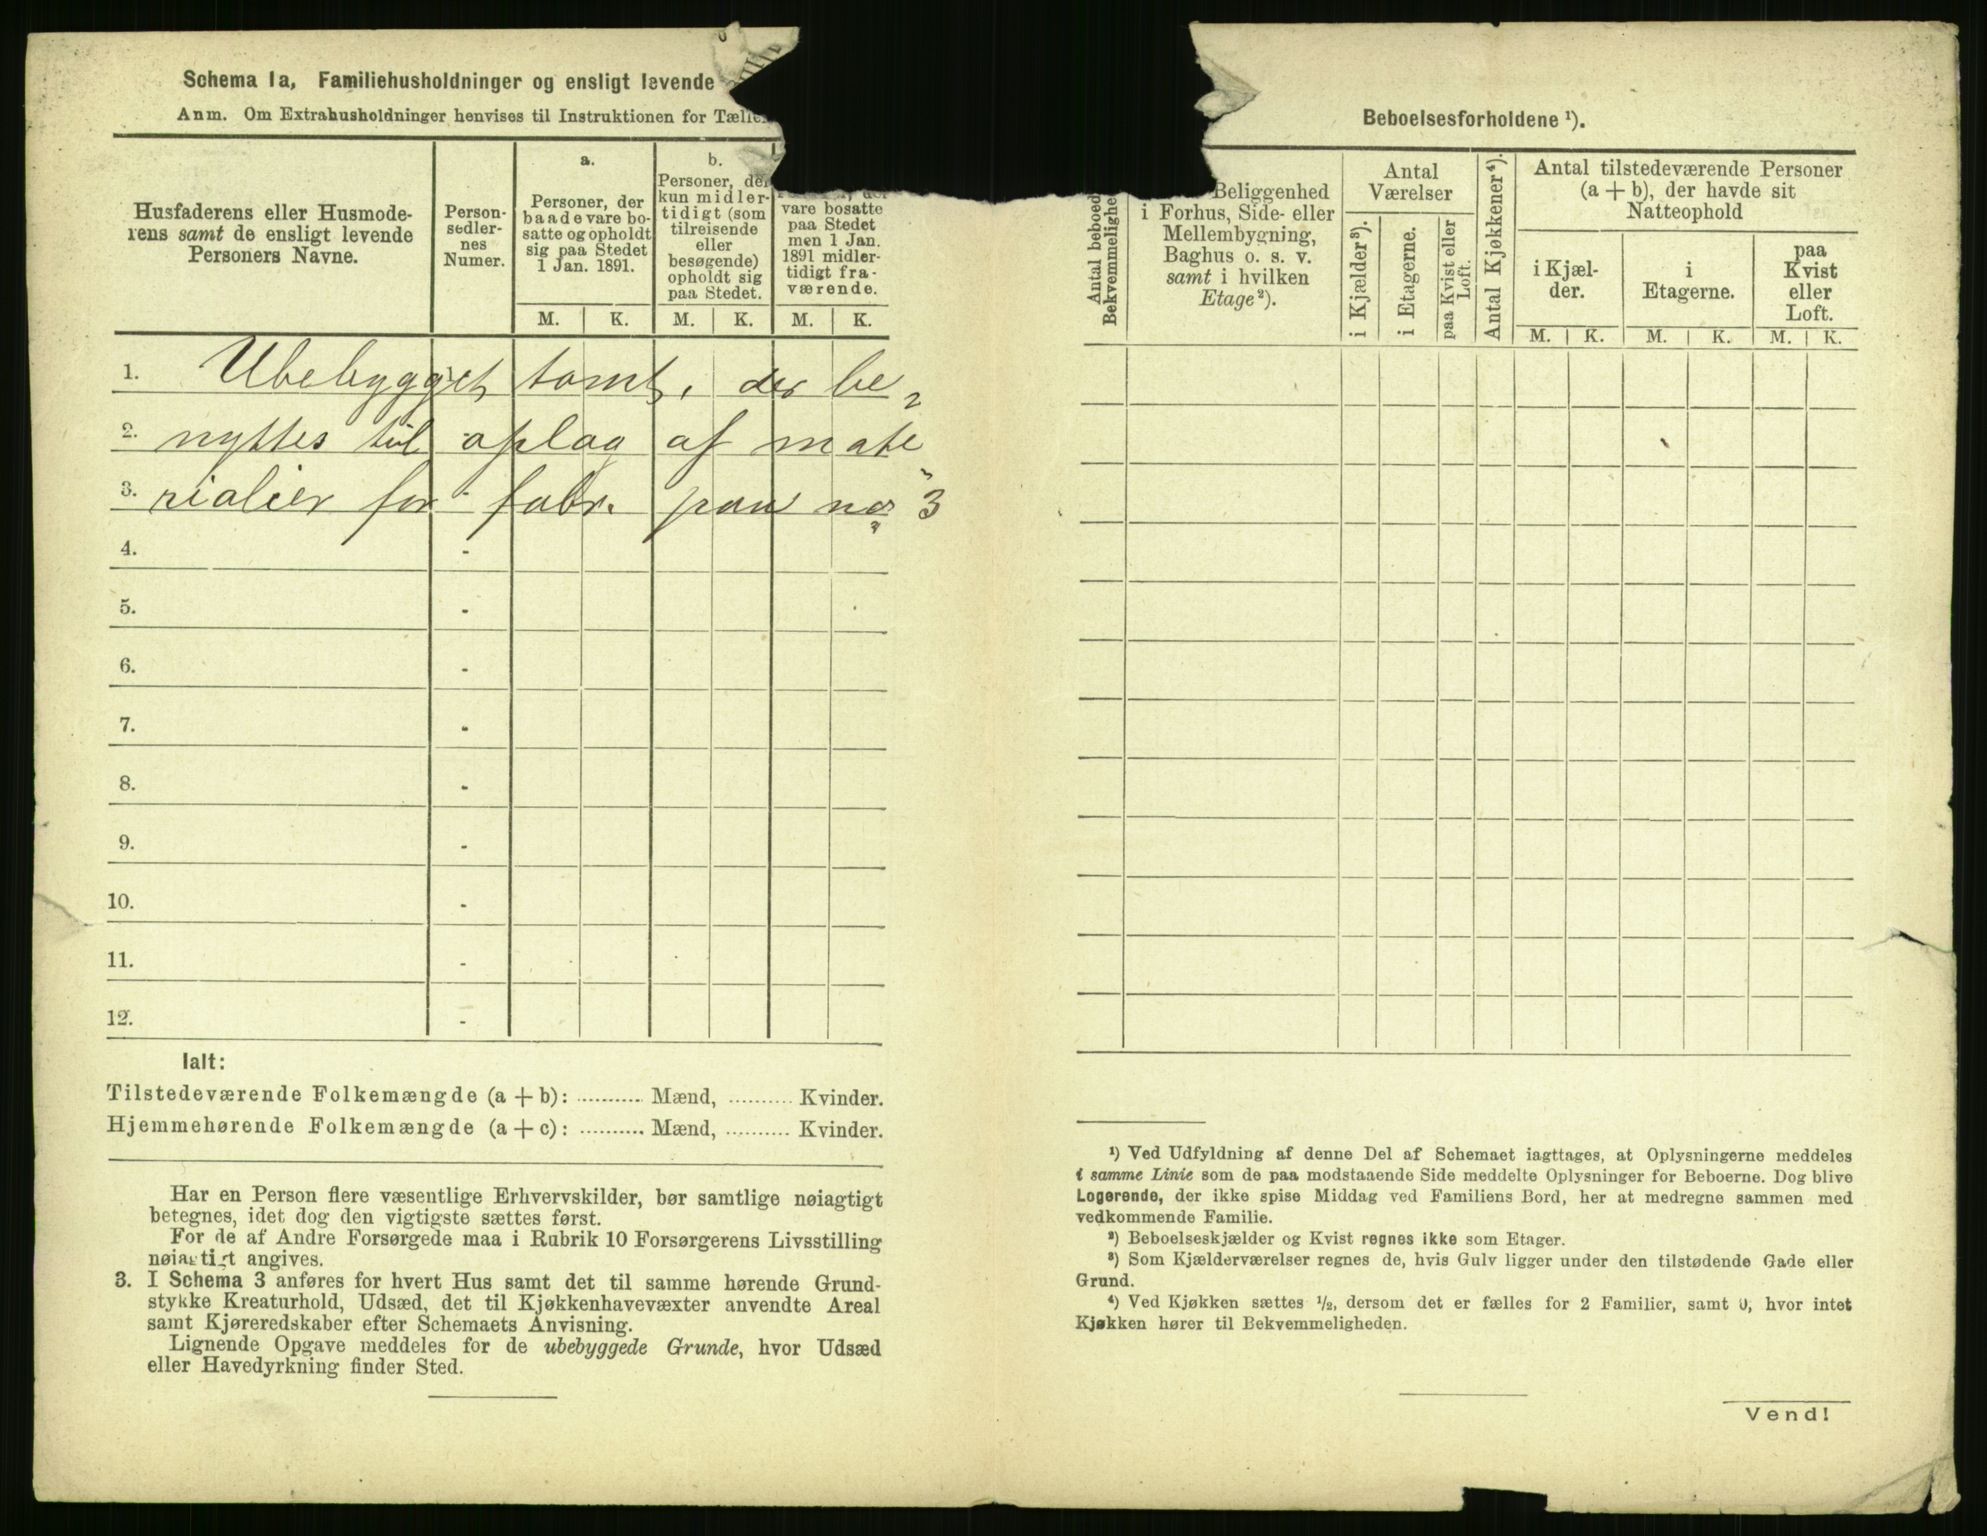 Schema 1a, Familiehusholdninger og ensligt levende
Anm. Om Extrahusholdninger henvises til Instruktionen for
Husfaderens eller Husmode-
rens samt de ensligt levende
Personers Navne.
Person-
sedler-
nes
Numer.
a.
Personer, der
baade vare bo-
satte og opholdt
sig paa Stedet
1 Jan. 1891.
b.
Personer, der
kun midler-
tidigt (som
tilreisende
eller
besøgende)
opholdt sig
paa Stedet.
vare bosatte
paa Stedet
men 1 Jan.
1891 midler-
tidigt fra-
værende.
M. K. M. K. M. K.
1. Ubebygget tomt, der be
2. nyttes til oplag af mate
3. rialier for - fabr. paa no 3
4. -
5. -
6. -
7. -
8. -
9. -
10. -
11. -
12. -
Ialt:
Tilstedeværende Folkemængde (a + b): .......... Mænd, .......... Kvinder.
Hjemmehørende Folkemængde (a + c): .......... Mænd, .......... Kvinder.
Har en Person flere væsentlige Erhvervskilder, bør samtlige nøiagtigt
betegnes, idet dog den vigtigste sættes først.
For de af Andre Forsørgede maa i Rubrik 10 Forsørgerens Livsstilling
nøiagtigt angives.
3. I Schema 3 anføres for hvert Hus samt det til samme hørende Grund-
stykke Kreaturhold, Udsæd, det til Kjøkkenhavevæxter anvendte Areal
samt Kjøreredskaber efter Schemaets Anvisning.
Lignende Opgave meddeles for de ubebyggede Grunde, hvor Udsæd
eller Havedyrkning finder Sted.
Beboelsesforholdene ¹).
Antal beboede
Bekvemmeligheder
Beliggenhed
i Forhus, Side- eller
Mellembygning,
Baghus o. s. v.
samt i hvilken
Etage ²).
Antal
Værelser
i Kjælder ³).
i Etagerne.
paa Kvist eller
Loft.
Antal Kjøkkener ⁴).
Antal tilstedeværende Personer
(a + b), der havde sit
Natteophold
i Kjæl-
der.
i
Etagerne.
paa
Kvist
eller
Loft.
M. K. M. K. M. K.
¹) Ved Udfyldning af denne Del af Schemaet iagttages, at Oplysningerne meddeles
i samme Linie som de paa modstaaende Side meddelte Oplysninger for Beboerne. Dog blive
Logerende, der ikke spise Middag ved Familiens Bord, her at medregne sammen med
vedkommende Familie.
²) Beboelseskjælder og Kvist regnes ikke som Etager.
³) Som Kjælderværelser regnes de, hvis Gulv ligger under den tilstødende Gade eller
Grund.
⁴) Ved Kjøkken sættes ½, dersom det er fælles for 2 Familier, samt 0, hvor intet
Kjøkken hører til Bekvemmeligheden.
Vend!